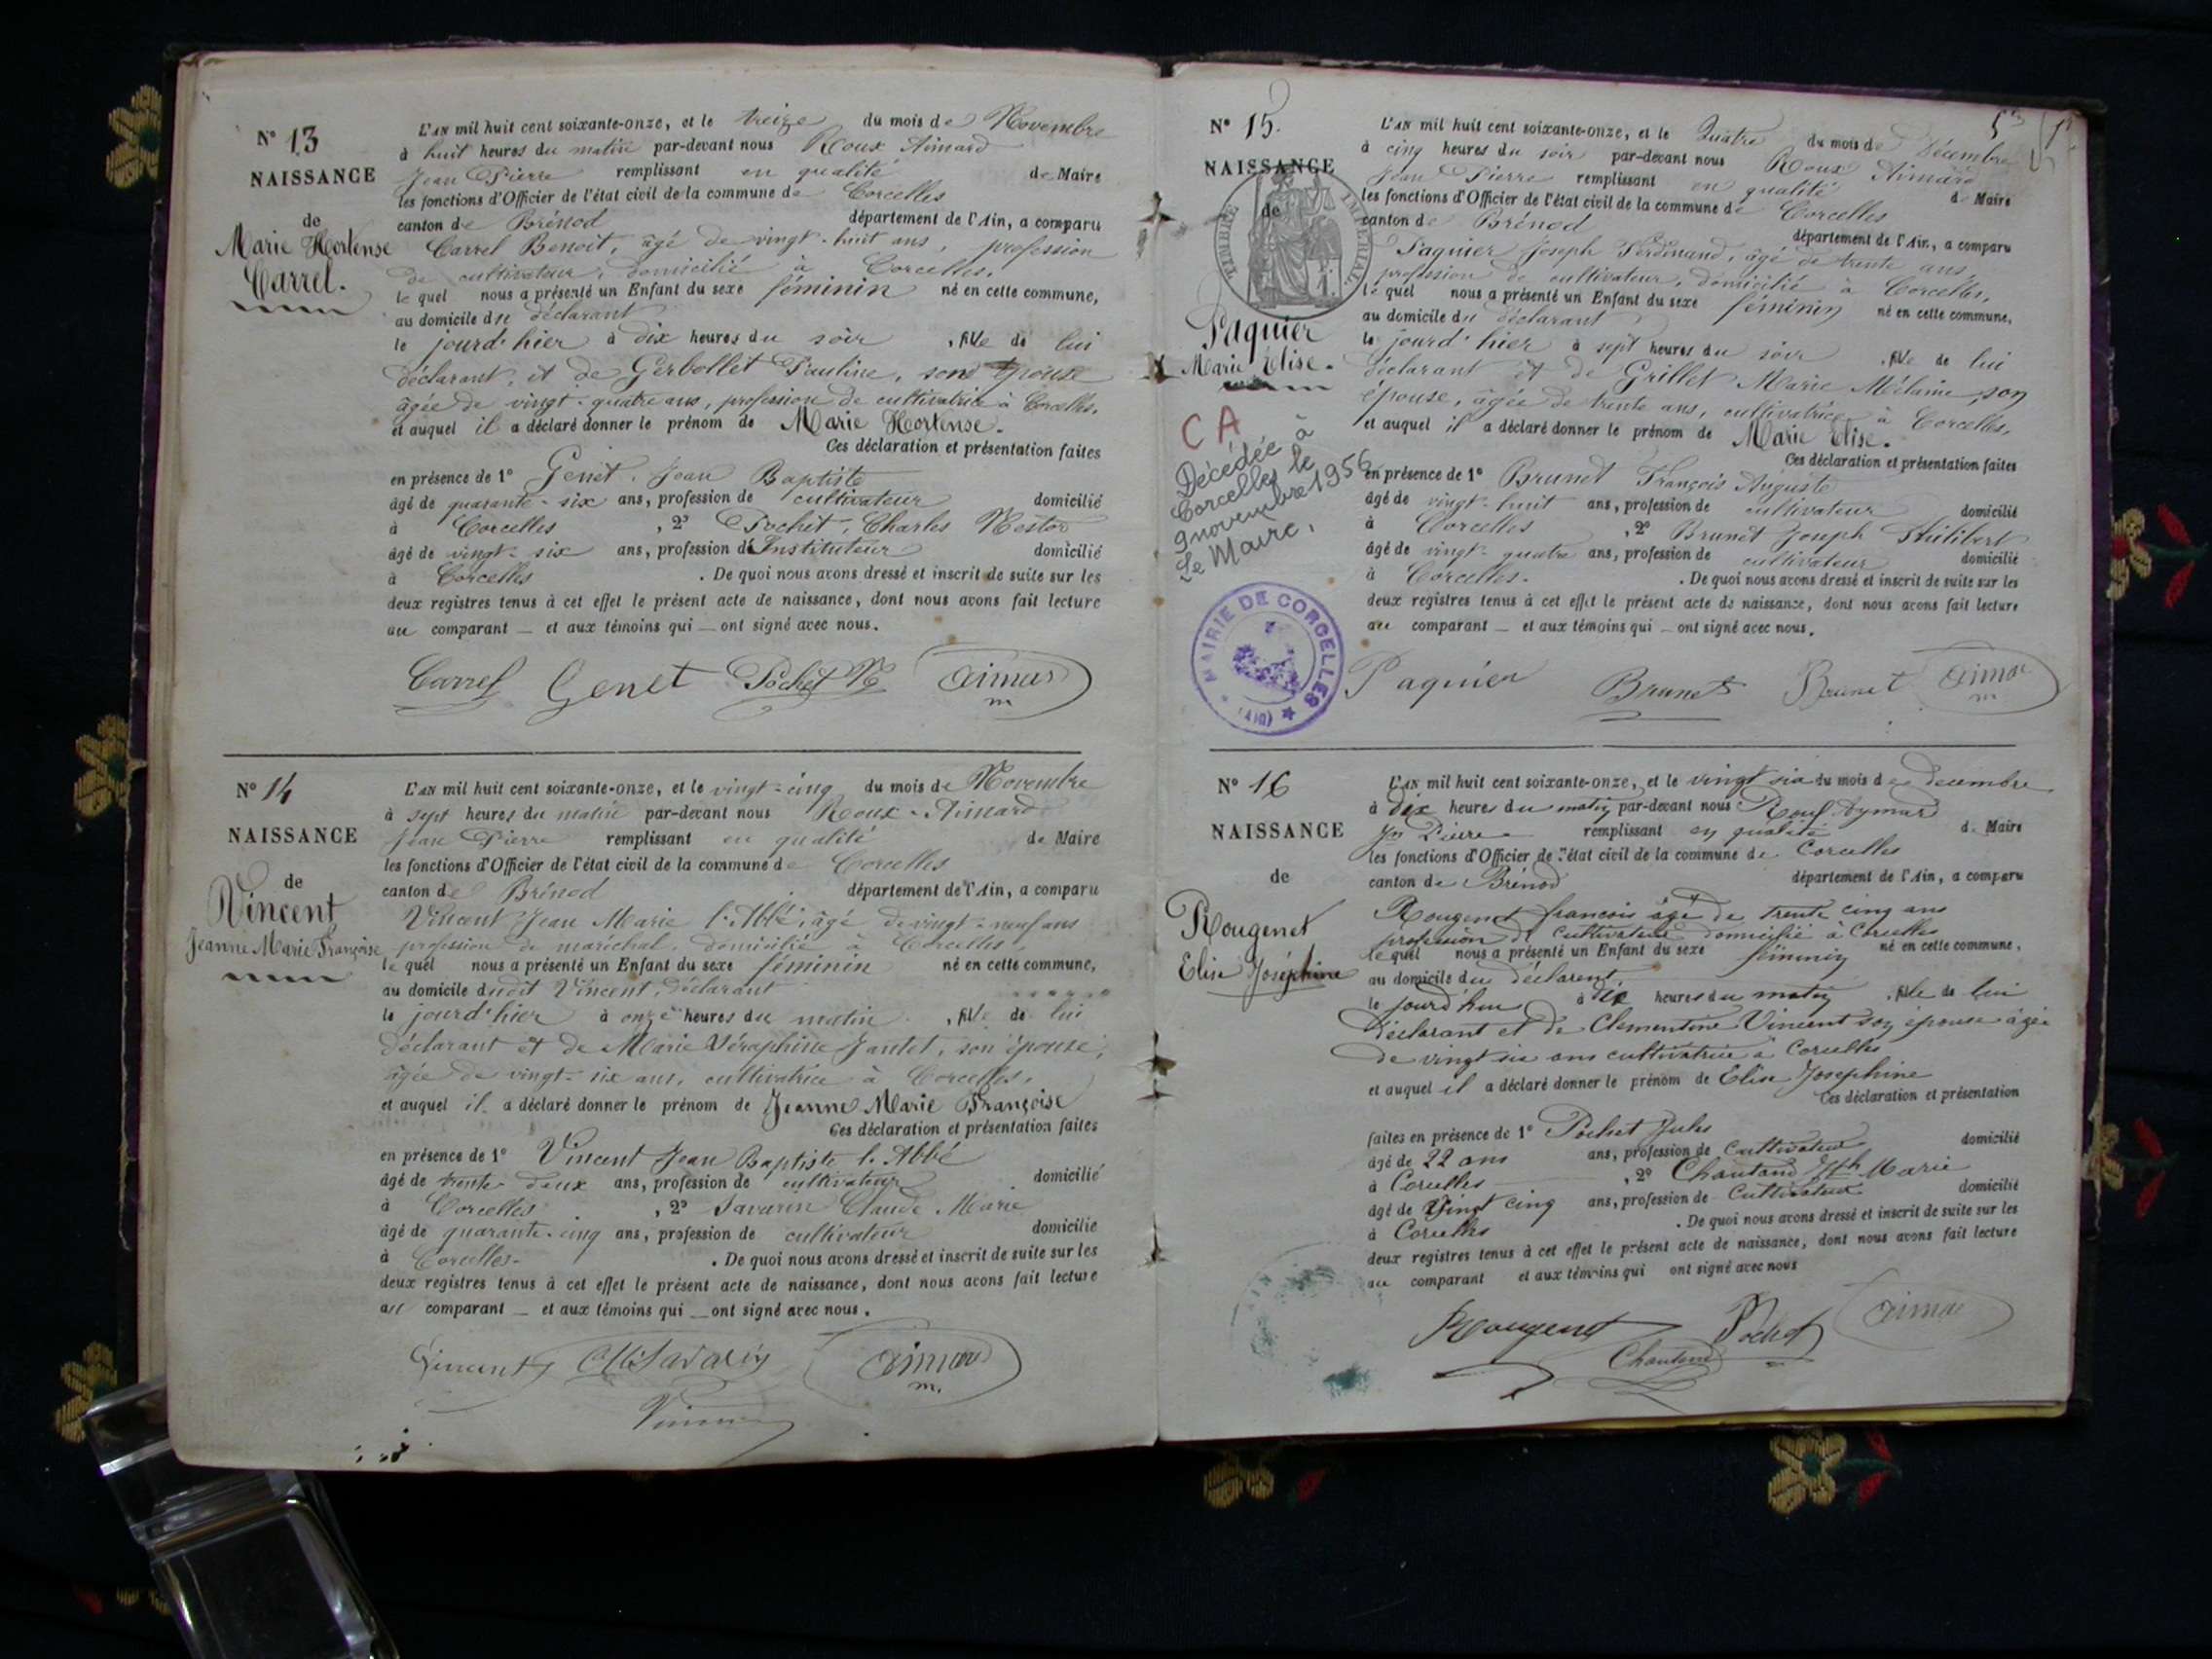 N° 13
NAISSANCE
de
Marie Hortense
Carrel.
L'AN mil huit cent soixante-onze, et le treize du mois de Novembre
à huit heures du matin par-devant nous Roux Aimard
Jean Pierre remplissant en qualité de Maire
les fonctions d'Officier de l'état civil de la commune de Corcelles
canton de Brénod département de l'Ain, a comparu
Carrel Benoit, âgé de vingt-huit ans, profession
de cultivateur, domicilié à Corcelles,
le quel nous a présenté un Enfant du sexe féminin né en cette commune,
au domicile du déclarant
le jourd'hier à dix heures du soir, fille de lui
déclarant, et de Gerbollet Pauline, son épouse
âgée de vingt-quatre ans, profession de cultivatrice à Corcelles,
et auquel il a déclaré donner le prénom de Marie Hortense.
Ces déclaration et présentation faites
en présence de 1° Genet, Jean Baptiste
âgé de quarante-six ans, profession de cultivateur domicilié
à Corcelles, 2° Pochet, Charles Nestor
âgé de vingt-six ans, profession d'Instituteur domicilié
à Corcelles. De quoi nous avons dressé et inscrit de suite sur les
deux registres tenus à cet effet le présent acte de naissance, dont nous avons fait lecture
au comparant — et aux témoins qui — ont signé avec nous.
Carrel Genet Pochet N Aimar
m
N° 14
NAISSANCE
de
Vincent
Jeanne Marie Françoise
L'AN mil huit cent soixante-onze, et le vingt-cinq du mois de Novembre
à sept heures du matin par-devant nous Roux-Aimard
Jean Pierre remplissant en qualité de Maire
les fonctions d'Officier de l'état civil de la commune de Corcelles
canton de Brénod département de l'Ain, a comparu
Vincent Jean Marie l'Abbé, âgé de vingt-neuf ans
profession de maréchal, domicilié à Corcelles,
le quel nous a présenté un Enfant du sexe féminin né en cette commune,
au domicile dudit Vincent, déclarant
le jourd'hier à onze heures du matin, fille de lui
déclarant et de Marie Séraphine Jantet, son épouse,
âgée de vingt-six ans, cultivatrice à Corcelles,
et auquel il a déclaré donner le prénom de Jeanne Marie Françoise
Ces déclaration et présentation faites
en présence de 1° Vincent Jean Baptiste l'Abbé
âgé de trente-deux ans, profession de cultivateur domicilié
à Corcelles, 2° Savarin Claude Marie
âgé de quarante-cinq ans, profession de cultivateur domicilié
à Corcelles. De quoi nous avons dressé et inscrit de suite sur les
deux registres tenus à cet effet le présent acte de naissance, dont nous avons fait lecture
au comparant — et aux témoins qui — ont signé avec nous.
Vincent Savarin Aimar
m.
Vincent
N° 15.
NAISSANCE
de
TIMBRE IMPERIAL
Paquier
Marie Elise.
CA
Décédée à
Corcelles le
9 novembre 1956
Le Maire,
MAIRIE DE CORCELLES
(AIN)
L'AN mil huit cent soixante-onze, et le Quatre du mois de Décembre
à cinq heures du soir par-devant nous Roux Aimard
Jean Pierre remplissant en qualité de Maire
les fonctions d'Officier de l'état civil de la commune de Corcelles
canton de Brénod département de l'Ain, a comparu
Paquier Joseph Ferdinand, âgé de trente ans,
profession de cultivateur, domicilié à Corcelles,
le quel nous a présenté un Enfant du sexe féminin né en cette commune,
au domicile du déclarant
le jourd'hier à sept heures du soir, fille de lui
déclarant et de Grillet Marie Mélanie, son
épouse, âgée de trente ans, cultivatrice à Corcelles,
et auquel il a déclaré donner le prénom de Marie Elise.
Ces déclaration et présentation faites
en présence de 1° Brunet François Auguste
âgé de vingt-huit ans, profession de cultivateur domicilié
à Corcelles, 2° Brunet Joseph Philibert
âgé de vingt-quatre ans, profession de cultivateur domicilié
à Corcelles. De quoi nous avons dressé et inscrit de suite sur les
deux registres tenus à cet effet le présent acte de naissance, dont nous avons fait lecture
au comparant — et aux témoins qui — ont signé avec nous.
Paquier Brunet Brunet Aimar
m
N° 16
NAISSANCE
de
Rougenet
Elise Joséphine
L'AN mil huit cent soixante-onze, et le vingt six du mois de decembre
à dix heures du matin par-devant nous Roux Aymar
Jn Pierre remplissant en qualité de Maire
les fonctions d'Officier de l'état civil de la commune de Corcelles
canton de Brénod département de l'Ain, a comparu
Rougenet francois âgé de trente cinq ans
profession de cultivateur domicilié à Corcelles
le quel nous a présenté un Enfant du sexe féminin né en cette commune,
au domicile du déclarent
le jourd'hui à dix heures du matin, fille de lui
déclarant et de Clementine Vincent son épouse âgée
de vingt six ans cultivatrice à Corcelles
et auquel il a déclaré donner le prénom de Elise Josephine
Ces déclaration et présentation
faites en présence de 1° Pochet Jules
âgé de 22 ans ans, profession de Cultivateur domicilié
à Corcelles, 2° Chautand Jph Marie
âgé de Vingt cinq ans, profession de Cultivateur domicilié
à Corcelles. De quoi nous avons dressé et inscrit de suite sur les
deux registres tenus à cet effet le présent acte de naissance, dont nous avons fait lecture
au comparant et aux témoins qui ont signé avec nous
Rougenet Pochet Aimar
Chautand